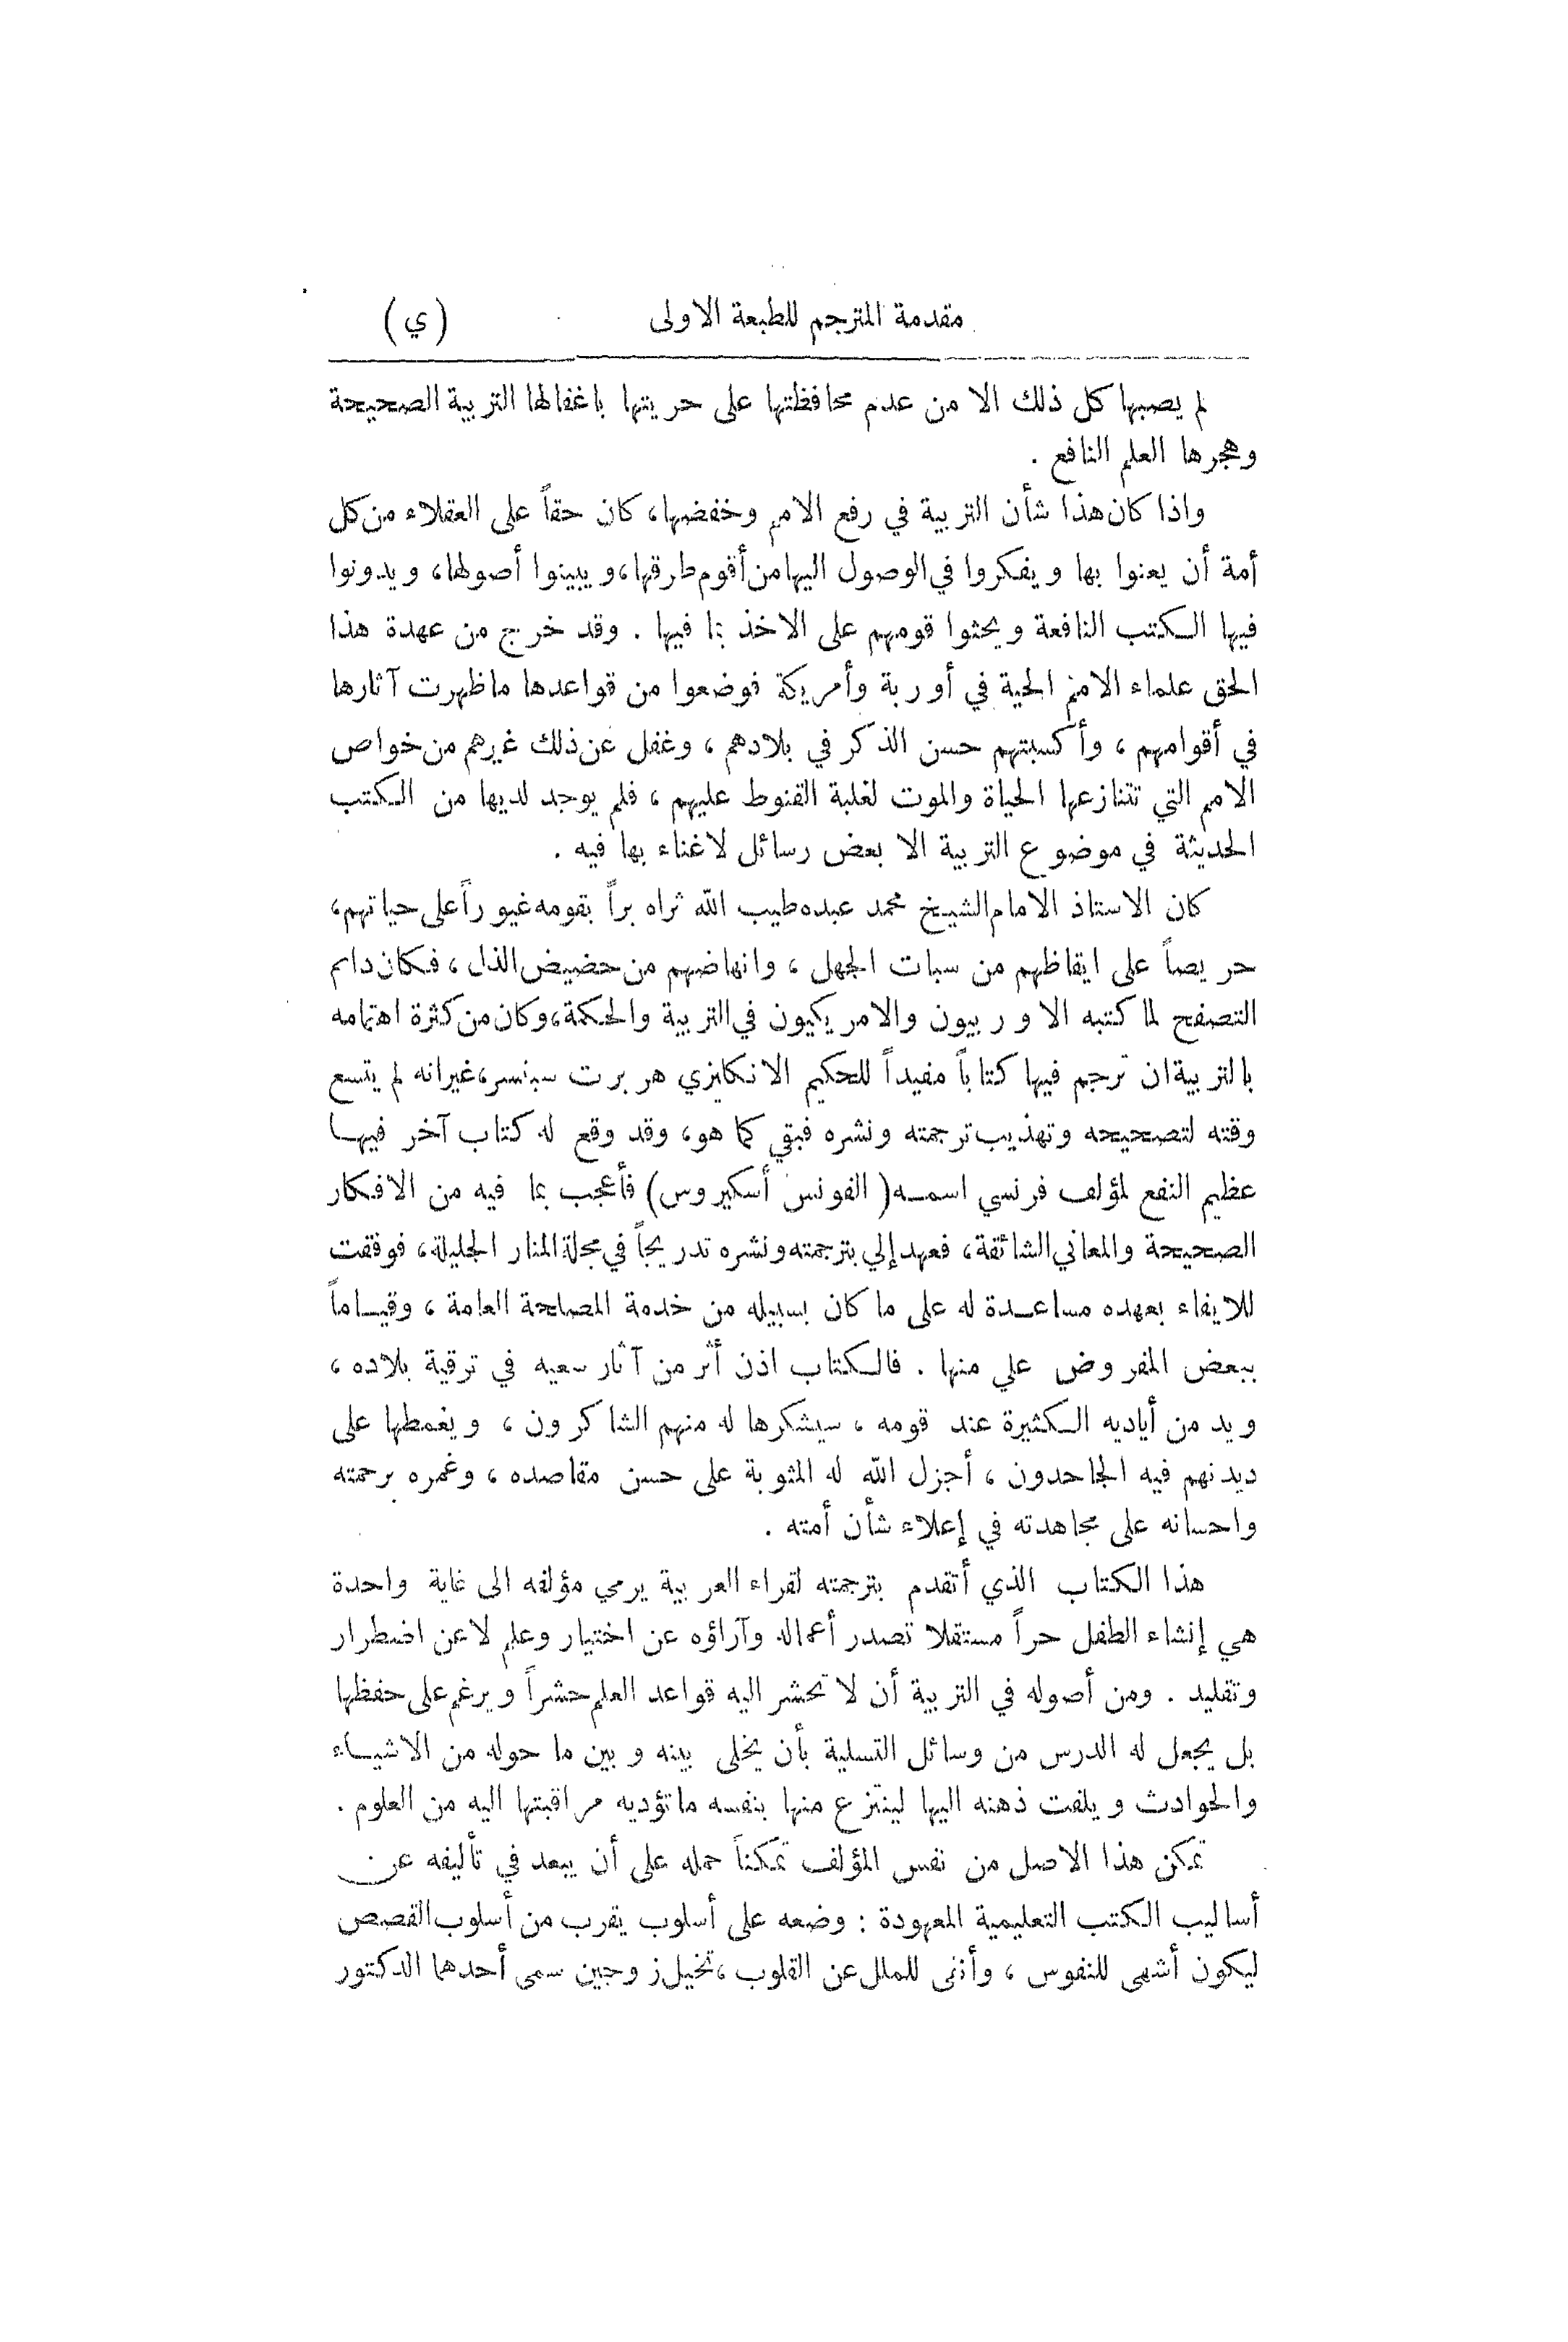 مقدمة المترجم للطبعة الاولى (ي)
لم يصبها كل ذلك الا من عدم محافظتها على حريتها باغفالها التربية الصحيحة
وهجرها العلم النافع .
واذا كان هذا شأن التربية في رفع الامم وخفضها، كان حقاً على العقلاء من كل
أمة أن يعنوا بها ويفكروا في الوصول اليها من أقوم طرقها، ويبينوا أصولها، ويدونوا
فيها الكتب النافعة ويحثوا قومهم على الاخذ بما فيها . وقد خرج من عهدة هذا
الحق علماء الامم الحية في أوربة وأمريكة فوضعوا من قواعدها ما ظهرت آثارها
في أقوامهم ، وأكسبتهم حسن الذكر في بلادهم ، وغفل عن ذلك غيرهم من خواص
الامم التي تتنازعها الحياة والموت لغلبة القنوط عليهم ، فلم يوجد لديها من الكتب
الحديثة في موضوع التربية الا بعض رسائل لا غناء بها فيه .
كان الاستاذ الامام الشيخ محمد عبده طيب الله ثراه براً بقومه غيوراً على حياتهم،
حريصاً على ايقاظهم من سبات الجهل ، وانهاضهم من حضيض الذل ، فكان دائم
التصفح لما كتبه الاوربيون والامريكيون في التربية والحكمة، وكان من كثرة اهتمامه
بالتربية ان ترجم فيها كتاباً مفيداً للحكيم الانكليزي هربرت سبنسر، غير انه لم يتسع
وقته لتصحيحه وتهذيب ترجمته ونشره فبقي كما هو، وقد وقع له كتاب آخر فيها
عظيم النفع لمؤلف فرنسي اسمه ( الفونس أسكيروس ) فأعجب بما فيه من الافكار
الصحيحة والمعاني الشائقة، فعهد إلي بترجمته ونشره تدريجاً في مجلة المنار الجليلة، فوفقت
للايفاء بعهده مساعدة له على ما كان بسبيله من خدمة المصلحة العامة ، وقياماً
ببعض المفروض علي منها . فالكتاب اذن أثر من آثار سعيه في ترقية بلاده ،
ويد من أياديه الكثيرة عند قومه ، سيشكرها له منهم الشاكرون ، ويغمطها على
ديدنهم فيه الجاحدون ، أجزل الله له المثوبة على حسن مقاصده ، وغمره برحمته
واحسانه على مجاهدته في إعلاء شأن أمته .
هذا الكتاب الذي أتقدم بترجمته لقراء العربية يرمي مؤلفه الى غاية واحدة
هي إنشاء الطفل حراً مستقلا تصدر أعماله وآراؤه عن اختيار وعلم لا عن اضطرار
وتقليد . ومن أصوله في التربية أن لا تحشر اليه قواعد العلم حشراً ويرغم على حفظها
بل يجعل له الدرس من وسائل التسلية بأن يخلى بينه وبين ما حوله من الاشياء
والحوادث ويلفت ذهنه اليها لينتزع منها بنفسه ما تؤديه مراقبتها اليه من العلوم .
تمكن هذا الاصل من نفس المؤلف تمكناً حمله على أن يبعد في تأليفه عن
أساليب الكتب التعليمية المعهودة : وضعه على أسلوب يقرب من أسلوب القصص
ليكون أشهى للنفوس ، وأنفى للملل عن القلوب ، تخيل زوجين سمى أحدهما الدكتور